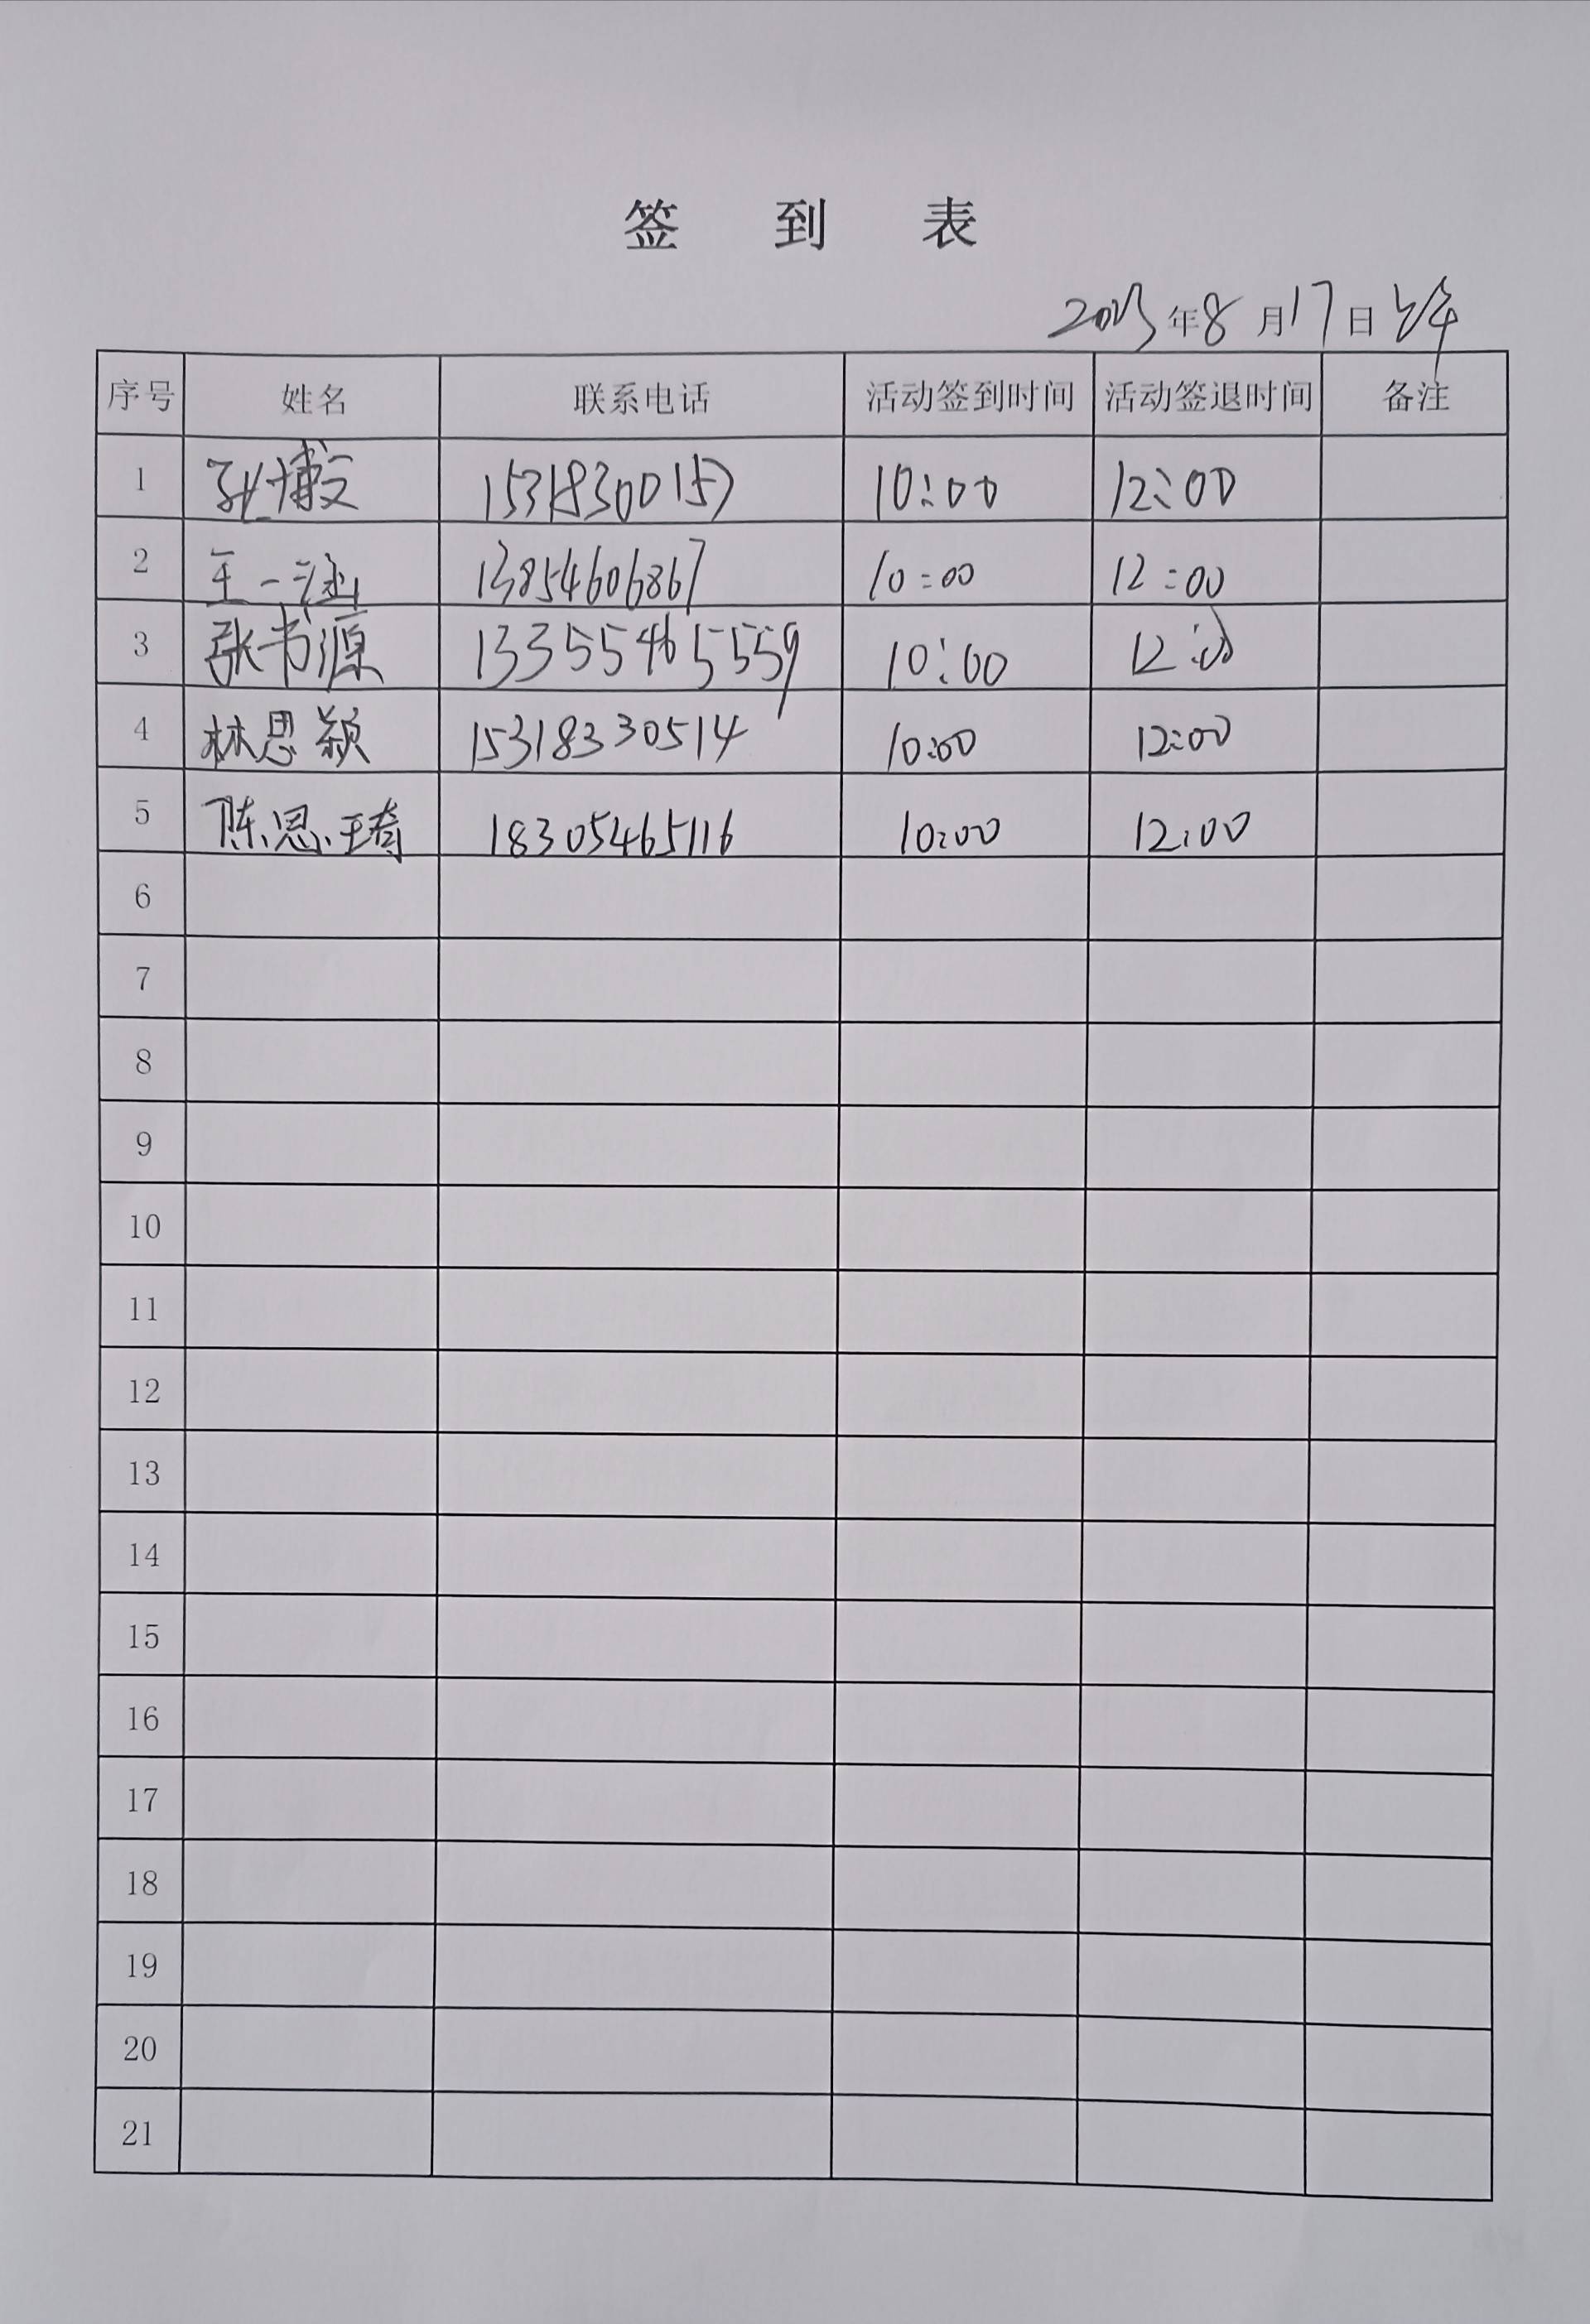 签 到 表
2023年8月17日上午
序号 姓名 联系电话 活动签到时间 活动签退时间 备注
1 博文 15318300157 10:00 12:00
2 王一涵 13854606867 10:00 12:00
3 张书源 13355465559 10:00 12:00
4 林思颖 15318330514 10:00 12:00
5 陈思琦 18305465116 10:00 12:00
6
7
8
9
10
11
12
13
14
15
16
17
18
19
20
21